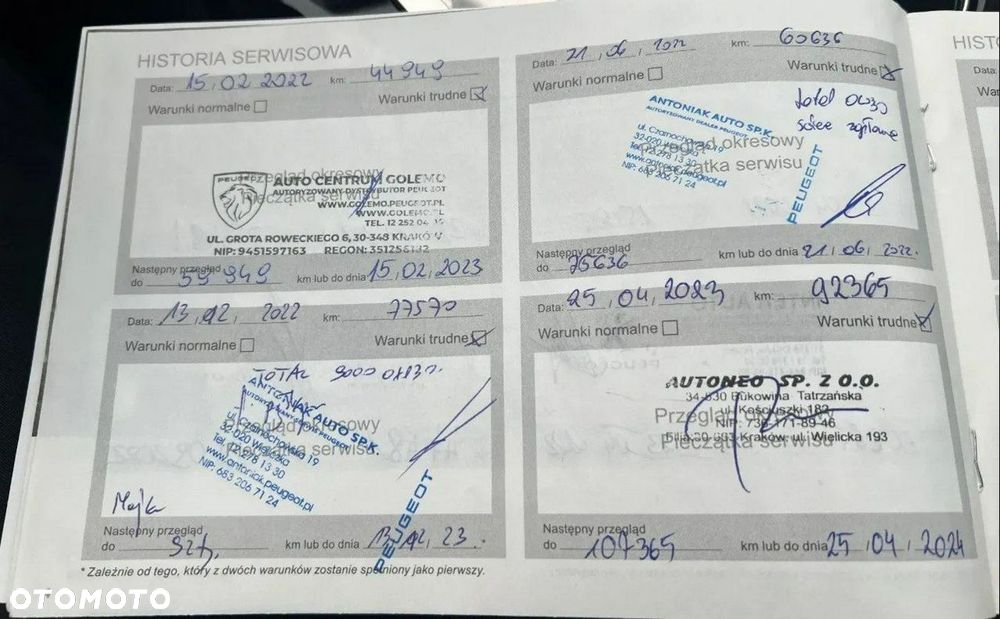 HISTORIA SERWISOWA
Data: 15.02 2022 km: 44949
Warunki normalne Warunki trudne
Przegląd okresowy
Pieczątka serwisu
PEUGEOT
AUTO CENTRUM GOLEMO
AUTORYZOWANY DYSTRYBUTOR PEUGEOT
WWW.GOLEMO.PEUGEOT.PL
WWW.GOLEMO.PL
TEL. 12 252 04
UL. GROTA ROWECKIEGO 6, 30-348 KRAKÓW
NIP: 9451597163 REGON:
Następny przegląd
do 59949 km lub do dnia 15.02.2023
Data: 21.06.2022 km: 60636
Warunki normalne Warunki trudne
total
ANTONIAK AUTO SP.K.
AUTORYZOWANY DEALER PEUGEOT
ul. Czarnochowska 19
32-020 Wieliczka
Tel. 12 278 13 30
www.antoniak.peugeot.pl
NIP: 683 206 71 24
PEUGEOT
Przegląd okresowy
Pieczątka serwisu
Następny przegląd
do 75636 km lub do dnia 21.06.2022.
Data: 13.12. 2022 km: 77570
Warunki normalne Warunki trudne
TOTAL 9000
ANTONIAK AUTO SP.K.
AUTORYZOWANY DEALER PEUGEOT
ul. Czarnochowska 19
32-020 Wieliczka
Tel. 12 278 13 30
www.antoniak.peugeot.pl
NIP: 683 206 71 24
PEUGEOT
Przegląd okresowy
Pieczątka serwisu
Następny przegląd
do km lub do dnia 13.12.23.
Data: 25.04.2023 km: 92365
Warunki normalne Warunki trudne
AUTONEO SP. Z O.O.
34-530 Bukowina Tatrzańska
ul. Kościuszki 182
NIP: 736-171-89-46
Filia 30-003 Kraków, ul. Wielicka 193
Przegląd okresowy
Pieczątka serwisu
Następny przegląd
do 107365 km lub do dnia 25.04.2024
* Zależnie od tego, który z dwóch warunków zostanie spełniony jako pierwszy.
HIST
Data:
OTOMOTO